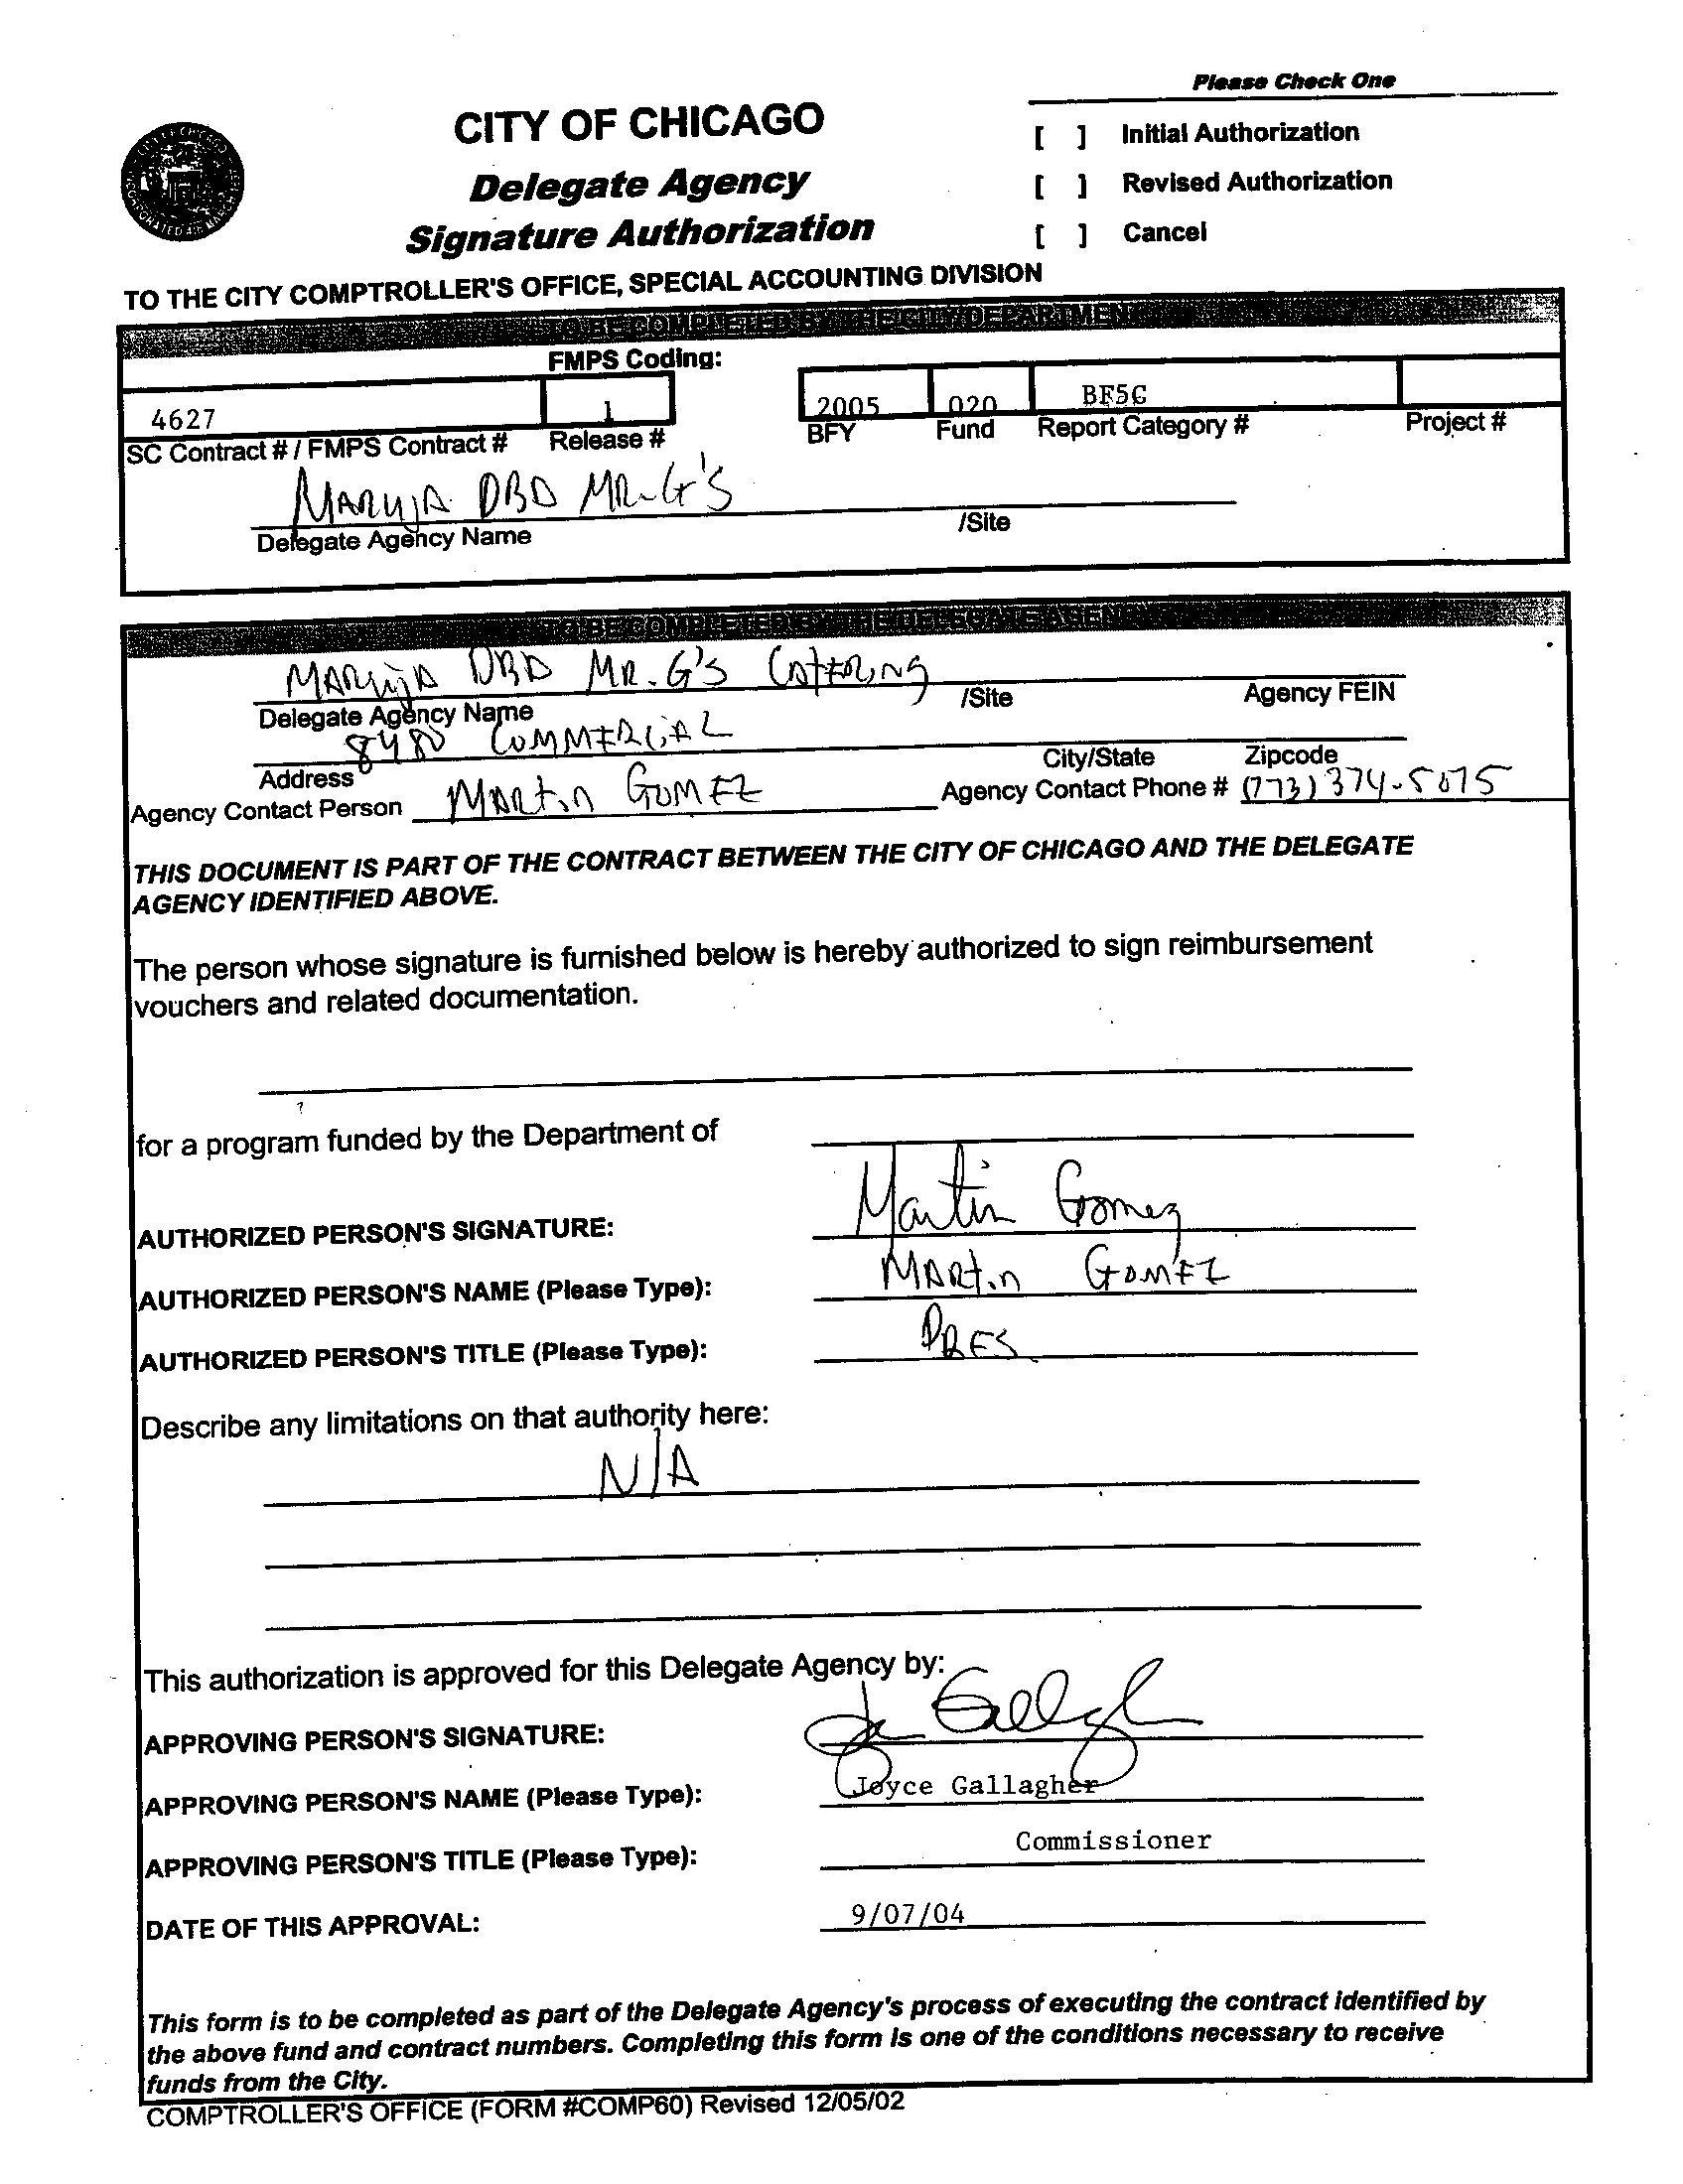 Please Check One
CITY OF CHICAGO
[ ] Initial Authorization
Delegate Agency
[ ] Revised Authorization
Signature Authorization
[ ] Cancel
TO THE CITY COMPTROLLER'S OFFICE, SPECIAL ACCOUNTING DIVISION
TO BE COMPLETED BY THE CITY DEPARTMENT
FMPS Coding:
4627 1 2005 020 BF5G
SC Contract # / FMPS Contract # Release # BFY Fund Report Category # Project #
MARYJA DBD MR-G'S
Delegate Agency Name /Site
TO BE COMPLETED BY THE DELEGATE AGENCY
MARYJA DBD MR. G'S CATERING
Delegate Agency Name /Site Agency FEIN
8480 COMMERCIAL
Address City/State Zipcode
Agency Contact Person MARTIN GOMEZ Agency Contact Phone # (773) 374-5075
THIS DOCUMENT IS PART OF THE CONTRACT BETWEEN THE CITY OF CHICAGO AND THE DELEGATE
AGENCY IDENTIFIED ABOVE.
The person whose signature is furnished below is hereby authorized to sign reimbursement
vouchers and related documentation.
for a program funded by the Department of
AUTHORIZED PERSON'S SIGNATURE: Martin Gomez
AUTHORIZED PERSON'S NAME (Please Type): MARTIN GOMEZ
AUTHORIZED PERSON'S TITLE (Please Type): PRES
Describe any limitations on that authority here:
N/A
This authorization is approved for this Delegate Agency by:
APPROVING PERSON'S SIGNATURE:
APPROVING PERSON'S NAME (Please Type): Joyce Gallagher
APPROVING PERSON'S TITLE (Please Type): Commissioner
DATE OF THIS APPROVAL: 9/07/04
This form is to be completed as part of the Delegate Agency's process of executing the contract identified by
the above fund and contract numbers. Completing this form is one of the conditions necessary to receive
funds from the City.
COMPTROLLER'S OFFICE (FORM #COMP60) Revised 12/05/02